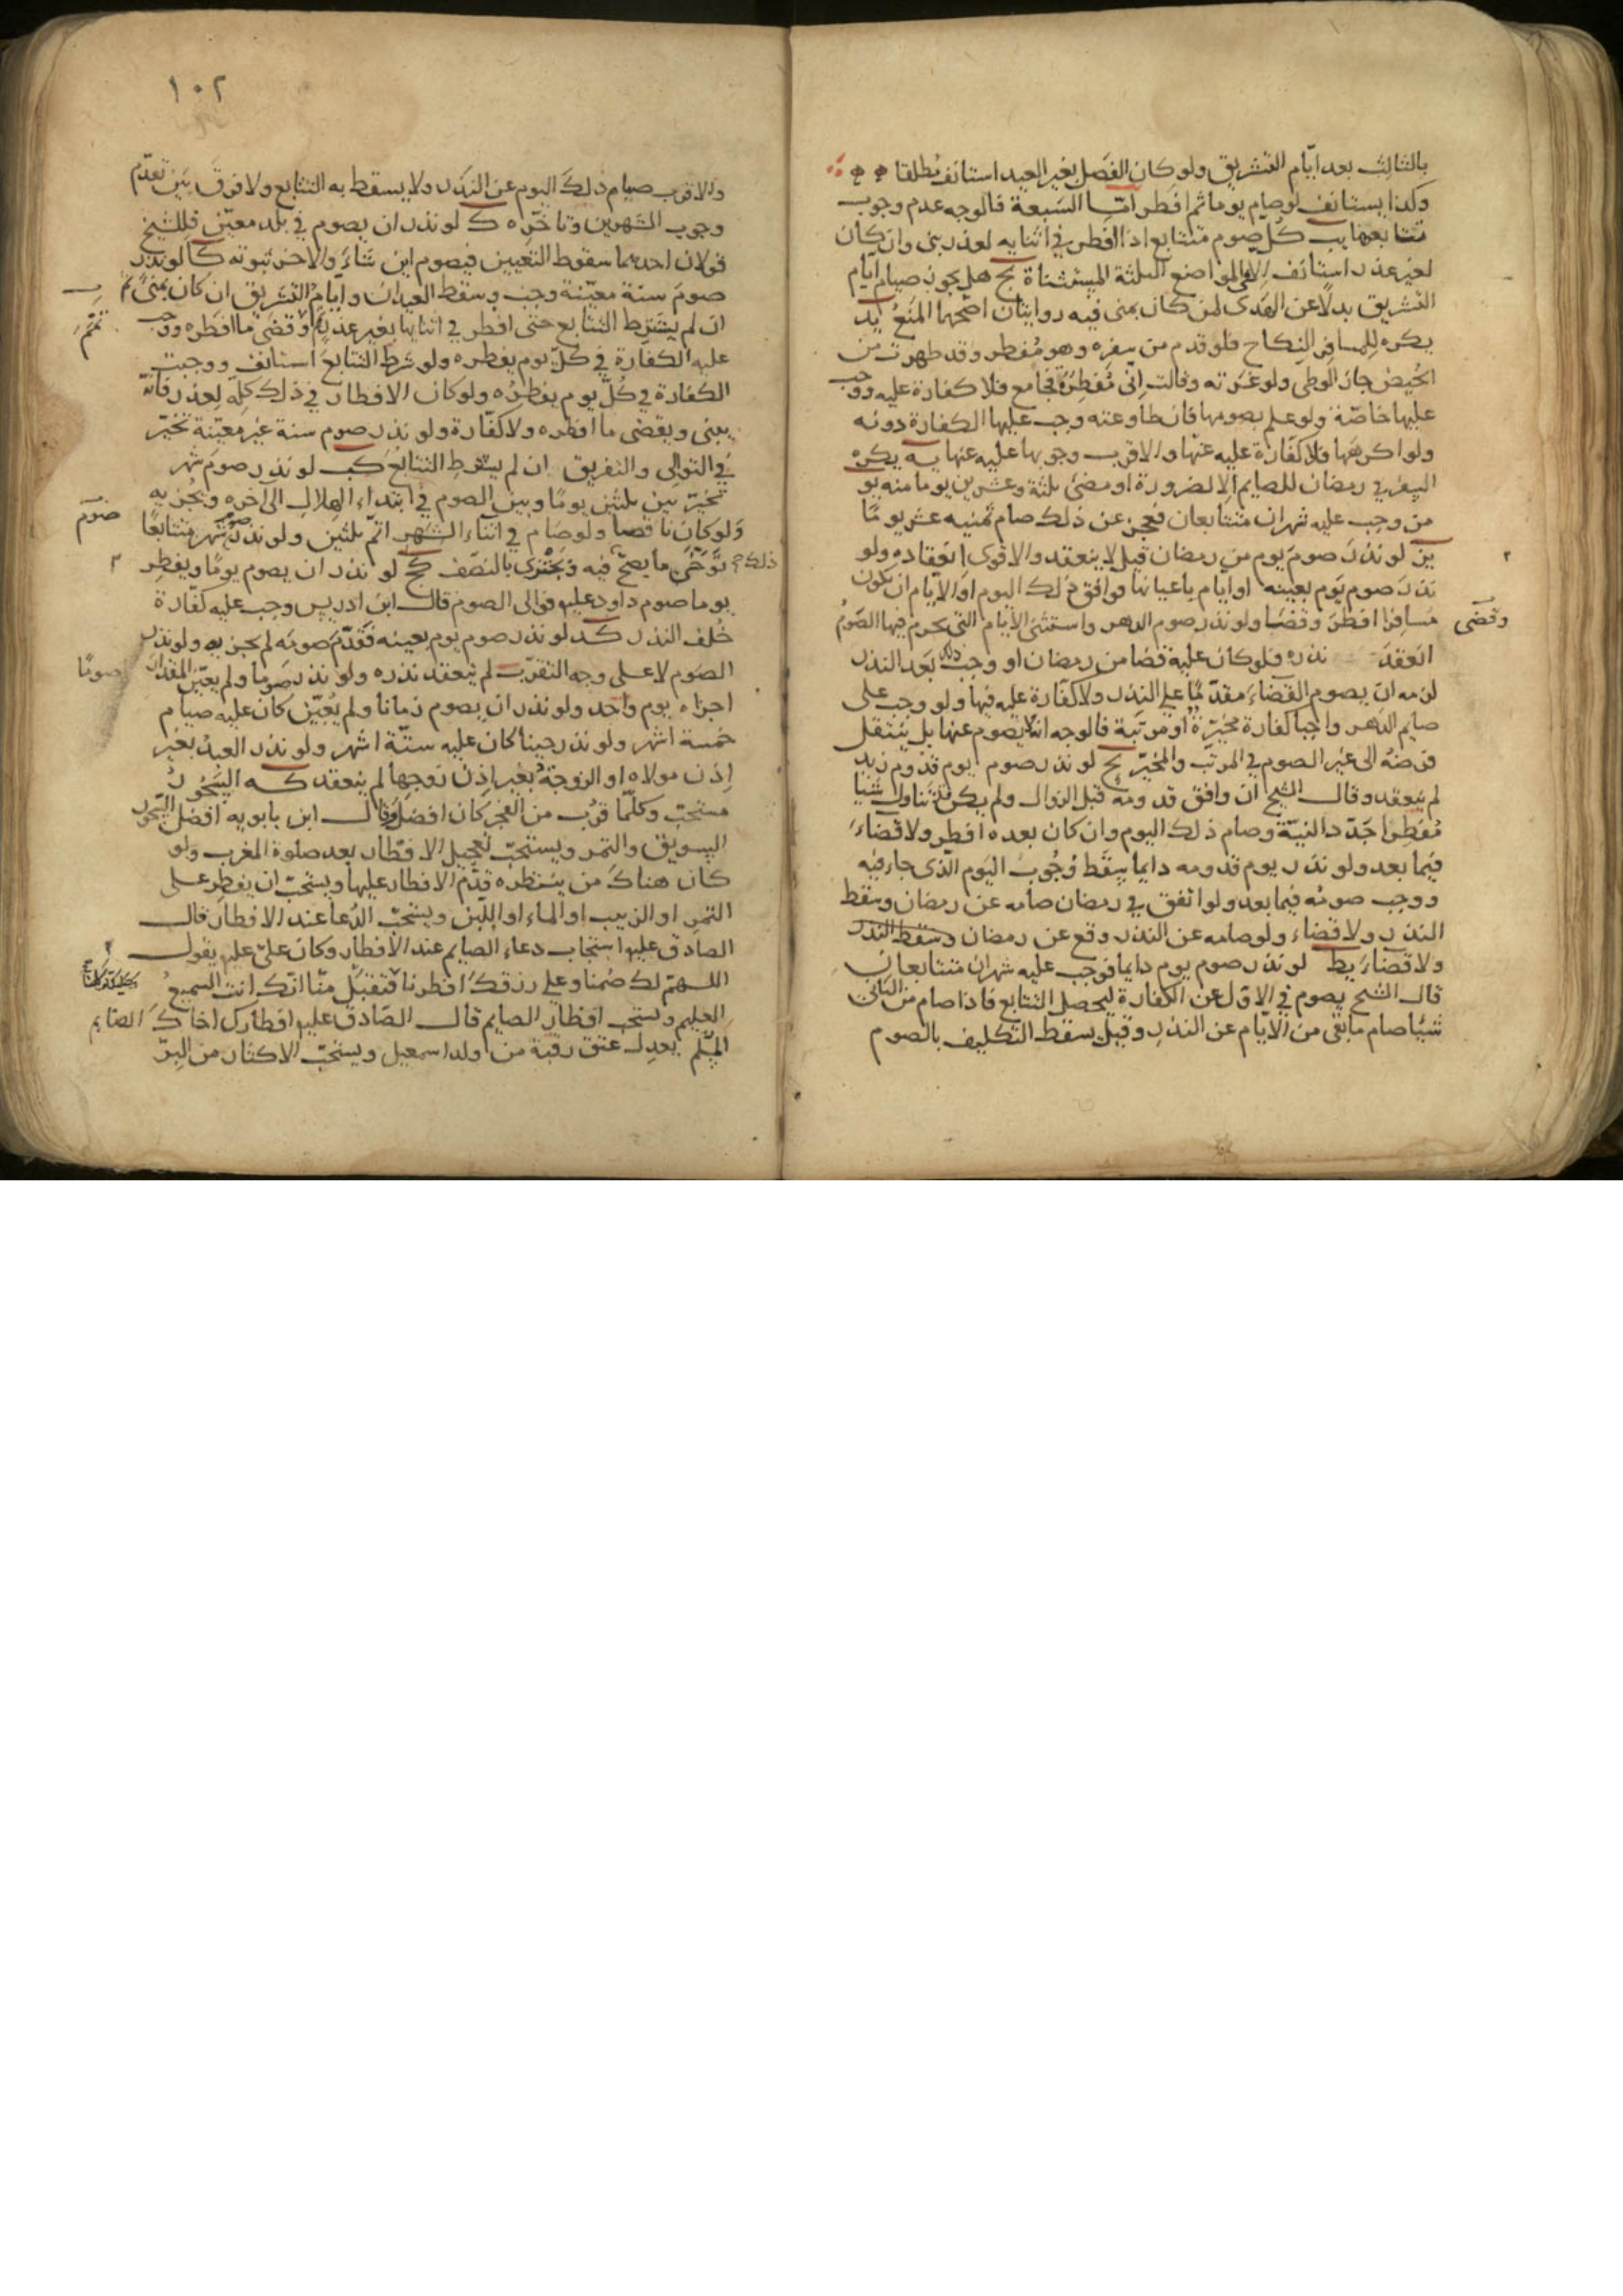 بالثالث بعد ايّام التشريق ولو كان الفصل بغير العيد استانف مطلقا
وكذا يستانف لو صام يوما ثم افطر امّا السبعة فالوجه عدم وجوب
تتابعها يب كل صوم متتابع اذا افطر في اثنايه لعذر بنى وان كان
لغير عذر استانف الا في المواضع الثلثة المستثناة يج هل يجوز صيام ايام
التشريق بدلا عن الهدى لمن كان بمنى فيه روايتان اصحهما المنع يد
يكره للمسافر النكاح فلو قدم من سفره وهو مفطر وقد طهرت من
الحيض جاز الوطى ولو غرته وقالت انى مفطرة فجامع فلا كفارة عليه ووجب
عليها خاصّة ولو علم بصومها فان طاوعته وجب عليها الكفارة دونه
ولو اكرهها فلا كفارة عليه عنها والاقرب وجوبها عليه عنها يه يكره
السفر في رمضان للصايم الا لضرورة او مضى ثلثة وعشرين يوما منه يو
من وجب عليه شهران متتابعان فعجز عن ذلك صام ثمنيه عشر يومًا
يز لو نذر صوم يوم من رمضان قيل لا ينعقد والاقوى انعقاده ولو
نذر صوم يوم بعينه او ايام باعيانها فوافق ذلك اليوم او الايام ان يكون
مسافرا افطر وقضا ولو نذر صوم الدهر واستثنى الايام التى يحرم فيها الصوم
وقضى
انعقد نذره فلو كان عليه قضا من رمضان او وجب ذلك بعد النذر
لزمه ان يصوم القضاء مقدّما على النذر ولا كفارة عليه فيها ولو وجب على
صايم الدهر واجبا كفارة مخيّرة او مرتبة فالوجه انه لا يصوم عنها بل ينتقل
فرضه الى غير الصوم في المرتب والمخيّر يح لو نذر صوم يوم قدوم زيد
لم ينعقد وقال الشيخ ان وافق قدومه قبل الزوال ولم يكن تناول شيا
مفطرا جدّد النيّة وصام ذلك اليوم وان كان بعده افطر ولا قضاء
فيما بعد ولو نذر يوم قدومه دايما سقط وجوب اليوم الّذى جاء فيه
ووجب صومه فيما بعد ولو اتفق في رمضان صامه عن رمضان وسقط
النذر ولا قضاء ولو صامه عن النذر وقع عن رمضان وسقط النذر
ولا قضاء يط لو نذر صوم يوم دايما فوجب عليه شهران متتابعان
قال الشيخ يصوم في الاول عن الكفارة ليحصل التتابع فاذا صام من الثانى
شيئا صام ما بقى من الايام عن النذر وقيل يسقط التكليف بالصوم
١٠٢
والاقرب صيام ذلك اليوم عن النذر ولا يسقط به التتابع ولا فرق بين تقدّم
وجوب الشهرين وتاخّره ك لو نذر ان يصوم في بلد معيّن فللشيخ
قولان احدهما سقوط التعيين فيصوم اين شاء والاخر ثبوته كا لو نذر
صوم سنة معيّنة وجب وسقط العيدان وايام التشريق ان كان بمنى ثم
ان لم يشترط التتابع حتى افطر في اثنايها بغير عذر وقضى ما افطره ووجب
تمّم
عليه الكفارة في كل يوم يفطره ولو شرط التتابع استانف ووجبت
الكفارة في كل يوم يفطره ولو كان الافطار في ذلك كله لعذر فانّه
يبنى ويقضى ما افطره ولا كفّارة ولو نذر صوم سنة غير معيّنة تخيّر
في التوالى والتفريق ان لم يشترط التتابع كب لو نذر صوم شهر
تخيّر بين ثلثين يومًا وبين الصوم في ابتداء الهلال الى اخره ويجزيه
ولو كان ناقصا ولو صام في اثناء الشهر اتمّ ثلثين ولو نذر شهر متتابعًا
صوم
ذلك توخّى ما يصحّ فيه ويجتزى بالنصف كج لو نذر ان يصوم يومًا ويفطر
يوما صوم داود عليه فوالى الصوم قال ابن ادريس وجب عليه كفّارة
خلف النذر كد لو نذر صوم يوم بعينه فقدّم صومه لم يجزيه ولو نذر
الصوم لا على وجه التقرّب لم ينعقد نذره ولو نذر صوما ولم يعيّن المقدار
صومًا
اجزاه يوم واحد ولو نذر ان يصوم زمانا ولم يعيّن كان عليه صيام
خمسة اشهر ولو نذر حينا كان عليه ستّة اشهر ولو نذر العبد بغير
اذن مولاه او الزوجة بغير اذن زوجها لم ينعقد كه السحور
مستحبّ وكلّما قرب من الفجر كان افضل وقال ابن بابويه افضل السحور
السويق والتمر ويستحبّ تعجيل الافطار بعد صلوة المغرب ولو
كان هناك من ينتظره قدّم الافطار عليها ويستحبّ ان يفطر على
التمر او الزبيب او الماء او اللبن ويستحبّ الدعا عند الافطار قال
الصادق عليه استجاب دعاء الصايم عند الافطار وكان علىّ عليه يقول
اللهمّ لك صمنا وعلى رزقك افطرنا فتقبّل منّا انّك انت السميع
العليم ويستحب افطار الصايم قال الصّادق عليه افطارك اخاك الصّايم
المسلم يعدل عتق رقبة من ولد اسمعيل ويستحبّ الاكثار من البرّ